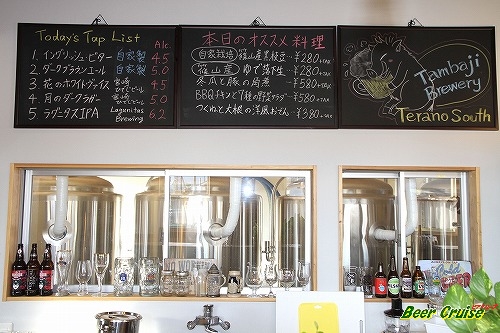 Today's Tap List
Alc.
1. イングリッシュ・ビター 自家製 4.5
2. ダークブラウンエール 自家製 5.0
3. 花のホワイトヴァイス 宮崎ひでじビール 4.5
4. 月のダークラガー 宮崎ひでじビール 5.0
5. ラグニタスIPA Lagunitas Brewing 6.2
本日のオススメ料理
自家栽培 篠山産黒枝豆 ¥280
篠山産 ゆで落花生 ¥280
冬瓜と豚の角煮 ¥580
BBQチキンと7種の野菜サラダ ¥580
つくねと大根の洋風おでん ¥380
Tambaji
Brewery
Terano South
Beer Cruise